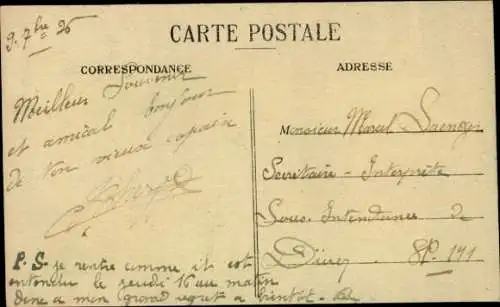 9. 7bre 26
CARTE POSTALE
CORRESPONDANCE
Meilleur Souvenir
et amical bonjour
de ton vieux copain
P.S. je rentre comme il est
entendu le jeudi 16 au matin
donc a mon grand regret a bientot
ADRESSE
Monsieur Marcel
Secrétaire - Interprète
Sous Intendance de
Düren SP. 191